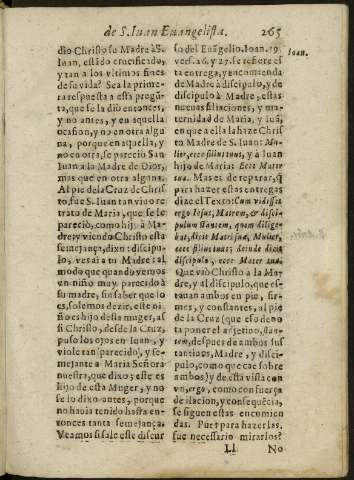 de S. Iuan Euangelista. 265
dio Christo su Madre à S.
Iuan, estãdo crucificado,
y tan a los vltimos fines
de su vida? Sea la prime-
ra respuesta a esta pregũ-
ta, que se la dio entonces,
y no antes, y en aquella
ocasion, y no en otra algu
na, porque en aquella, y
no en otra, se pareciò San
Iuan a la Madre de Dios,
mas que en otra alguna.
Al pie de la Cruz de Chris
to, fue S. Iuan tan viuo re
trato de Maria, que se le
pareciò, como hijo à Ma-
dre; y viendo Christo esta
semejança, dixo: discipu-
lo, ves ai a tu Madre: al
modo que quando vemos
vn niño muy parecido à
su madre, sin saber que lo
es, solemos dezir, este ni-
ño es hijo desta muger, as
si Christo, desde la Cruz,
puso los ojos en Iuan, y
viole tan parecido, y se-
mejante a Maria Señora
nuestra, que dixo: este es
hijo de esta Muger, y no
se lo dixo antes, porque
no hauia tenido hasta en-
tonces tanta semejança.
Veamos si sale este discur
so del Euãgelio. Ioan. 19
vers. 26. y 27. se refiere es
ta entrega, y encomienda
de Madre à discipulo, y de
discipulo à Madre, estas
nueuas filiaciones, y ma-
ternidad de Maria, y Iuã,
en que a ella la haze Chris
to Madre de S. Iuan: Mu-
lier, ecce filius tuus, y à Iuan
hijo de Maria: Ecce Mater
tua. Mas es de reparar, q̃
para hazer estas entregas
dize el Texto: Cum vidisset
ergo Iesus, Matrem, & disci-
pulum stantem, quem dilige-
bat, dicit Matri suæ, Mulier,
ecce filius tuus: deinde dicit
discipulo, ecce Mater tua.
Que vio Christo à la Ma-
dre, y al discipulo, que es-
tauan ambos en pie, fir-
mes, y constantes, al pie
de la Cruz (que eso deno
ta poner el adjetiuo, stan-
tem, despues de ambos sus
tantiuos, Madre, y disci-
pulo, como que cae sobre
ambos) y de esta vista con
vn, ergo, como con fuerça
de ilacion, y consequẽcia,
se siguen estas encomien
das. Pues para hazerlas,
fue necessario mirarlos?
Ioan.
Ll No